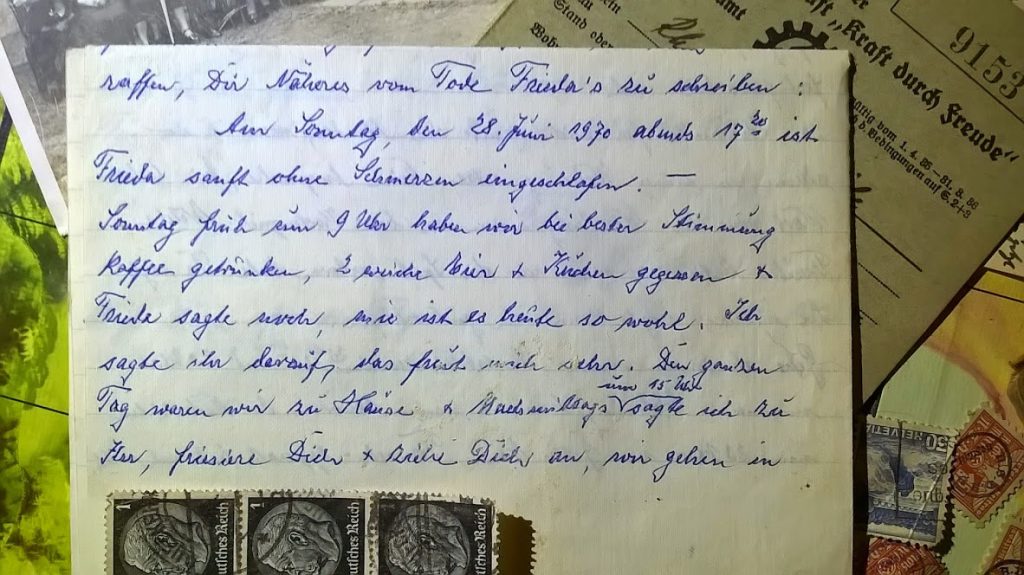 raffen, Dir Näheres vom Tode Frieda's zu schreiben :
Am Sonntag, den 28. Juni 1970 abends 17 30 ist
Frieda sanft ohne Schmerzen eingeschlafen. —
Sonntag früh um 9 Uhr haben wir bei bester Stimmung
Kaffee getrunken, 2 weiche Eier + Kuchen gegessen +
Frieda sagte noch, mir ist es heute so wohl. Ich
sagte ihr darauf, das freut mich sehr. Den ganzen
um 15 Uhr
Tag waren wir zu Hause + Nachmittags sagte ich zu
Ihr, frisiere Dich + ziehe Dich an, wir gehen in
1 Deutsches Reich
1 Deutsches Reich
1 Deutsches Reich
amt
Stand
Kraft „Kraft durch Freude"
9153
gültig vom 1. 4. 36 - 31. 3. 36
Bedingungen auf S. 2+3
30
HELVETIA